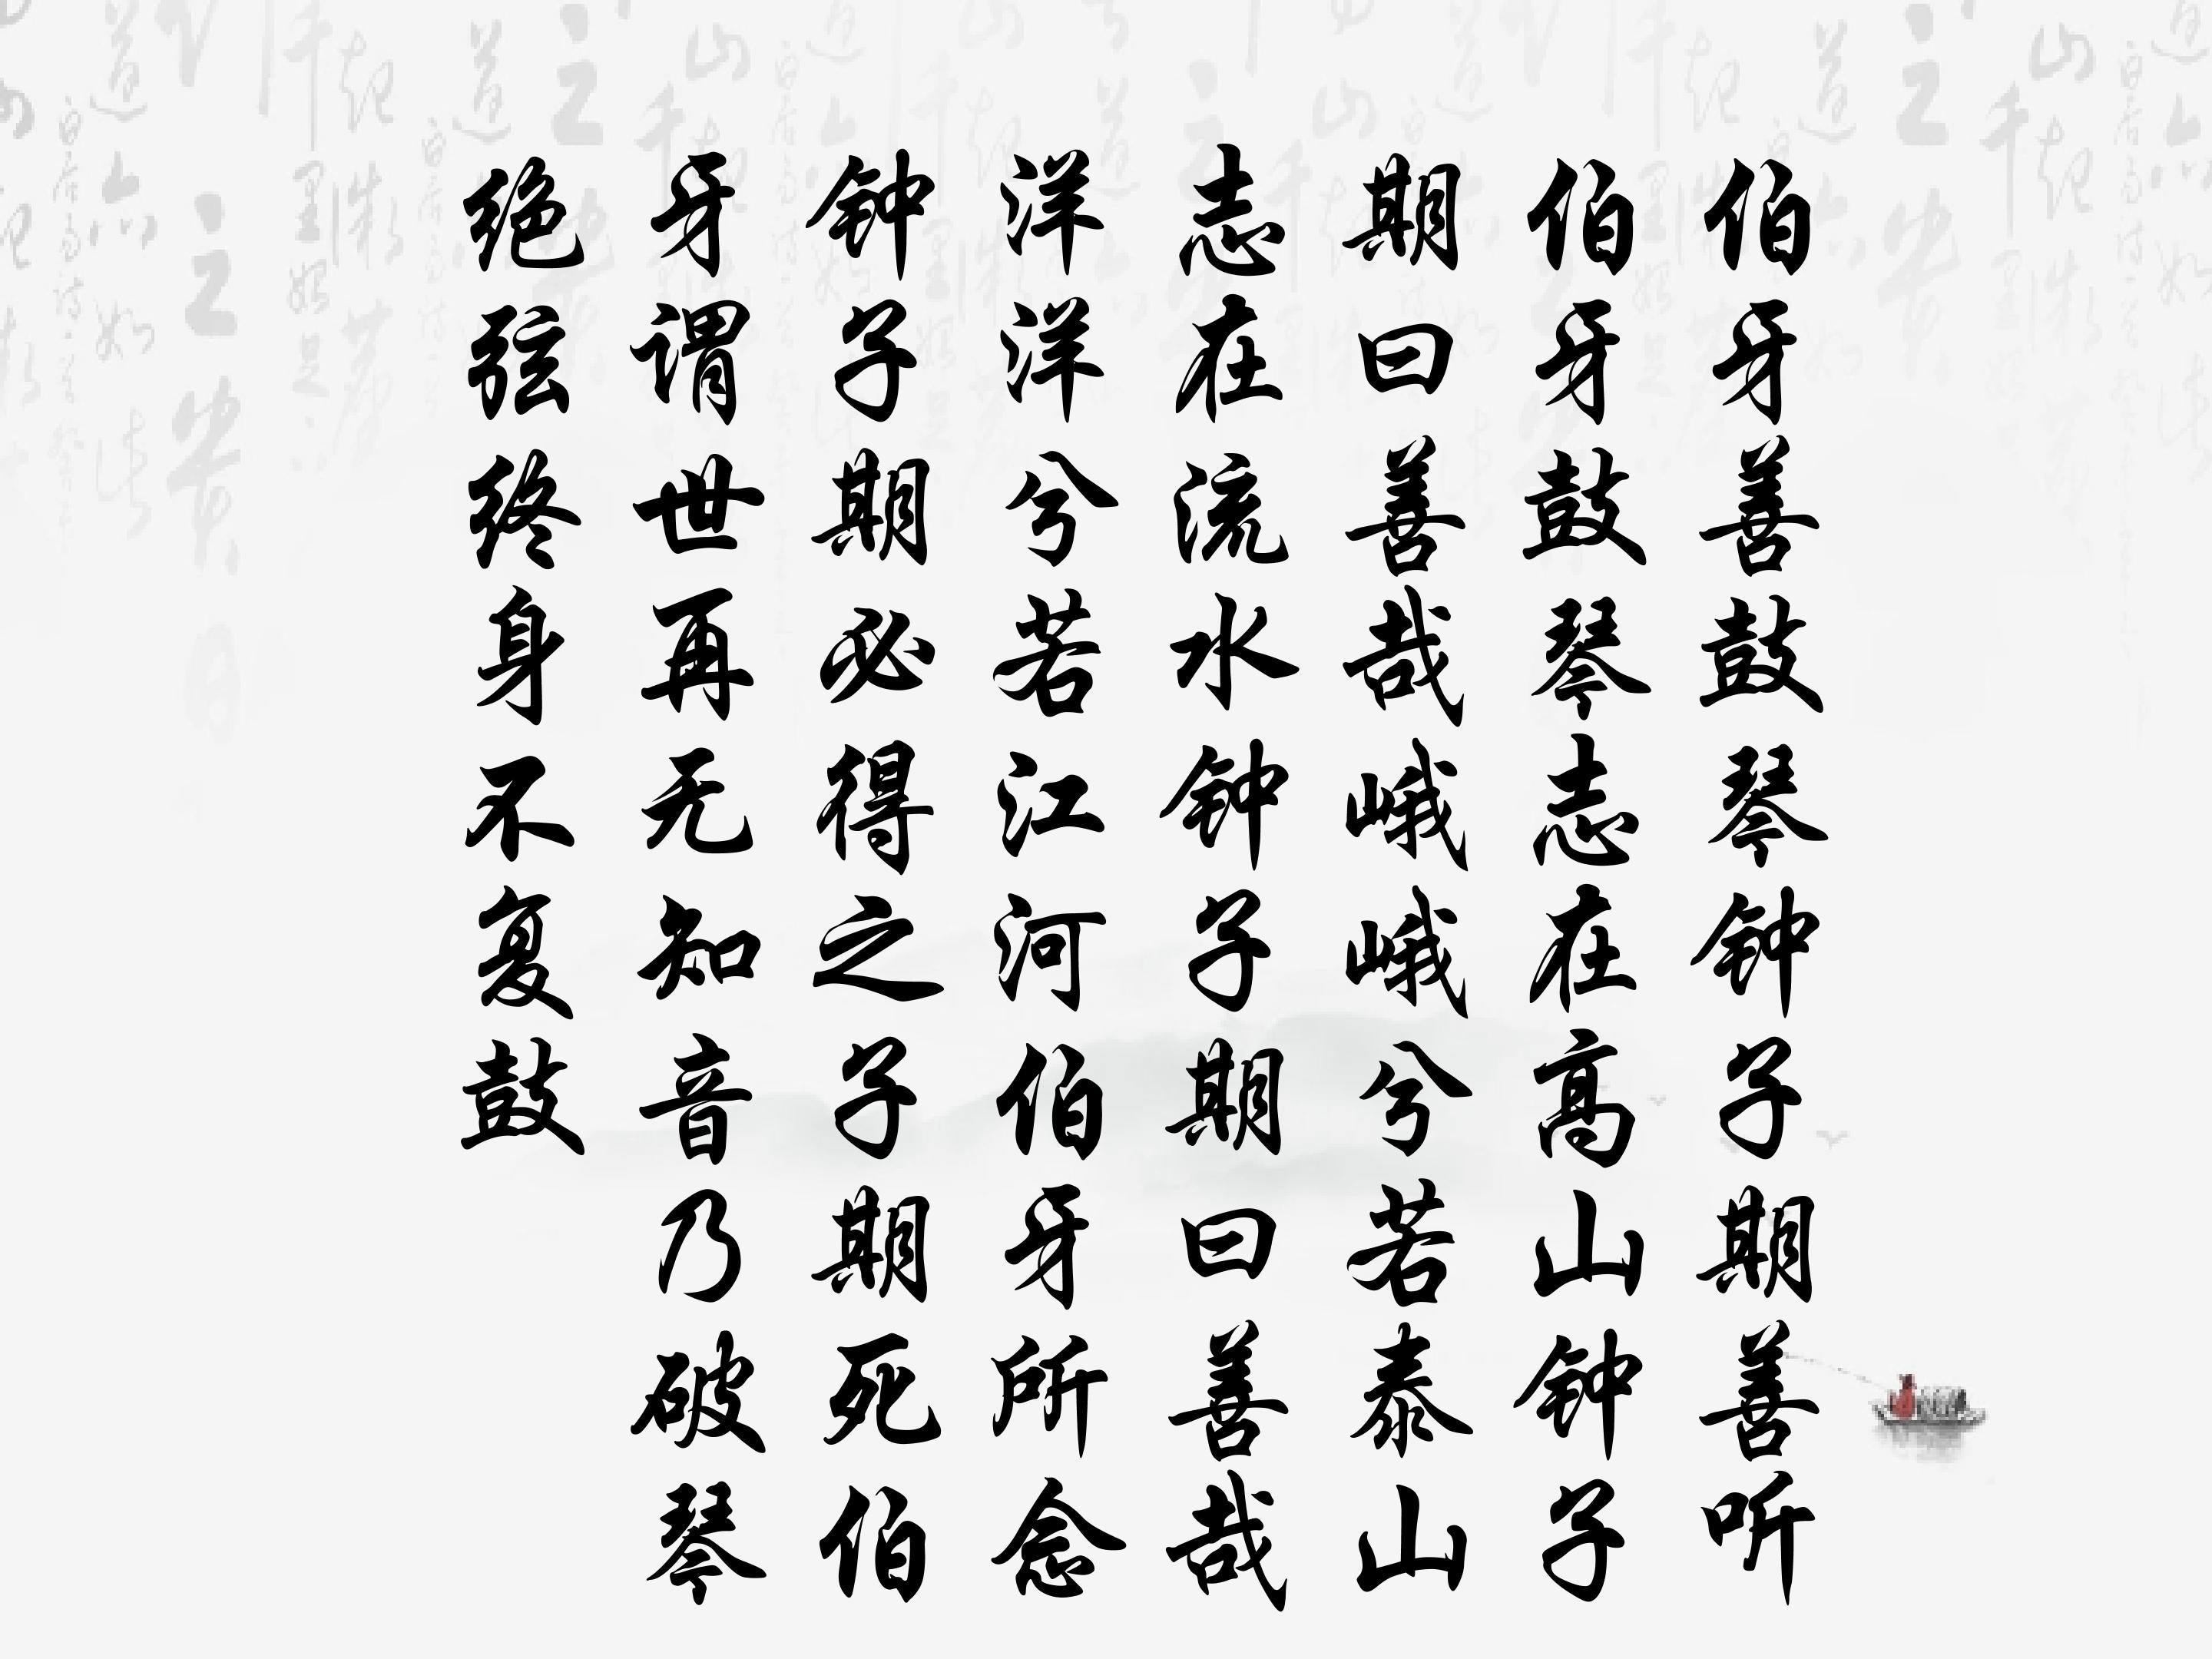 伯牙善鼓琴钟子期善听
伯牙鼓琴志在高山钟子
期曰善哉峨峨兮若泰山
志在流水钟子期曰善哉
洋洋兮若江河伯牙所念
钟子期必得之子期死伯
牙谓世再无知音乃破琴
绝弦终身不复鼓